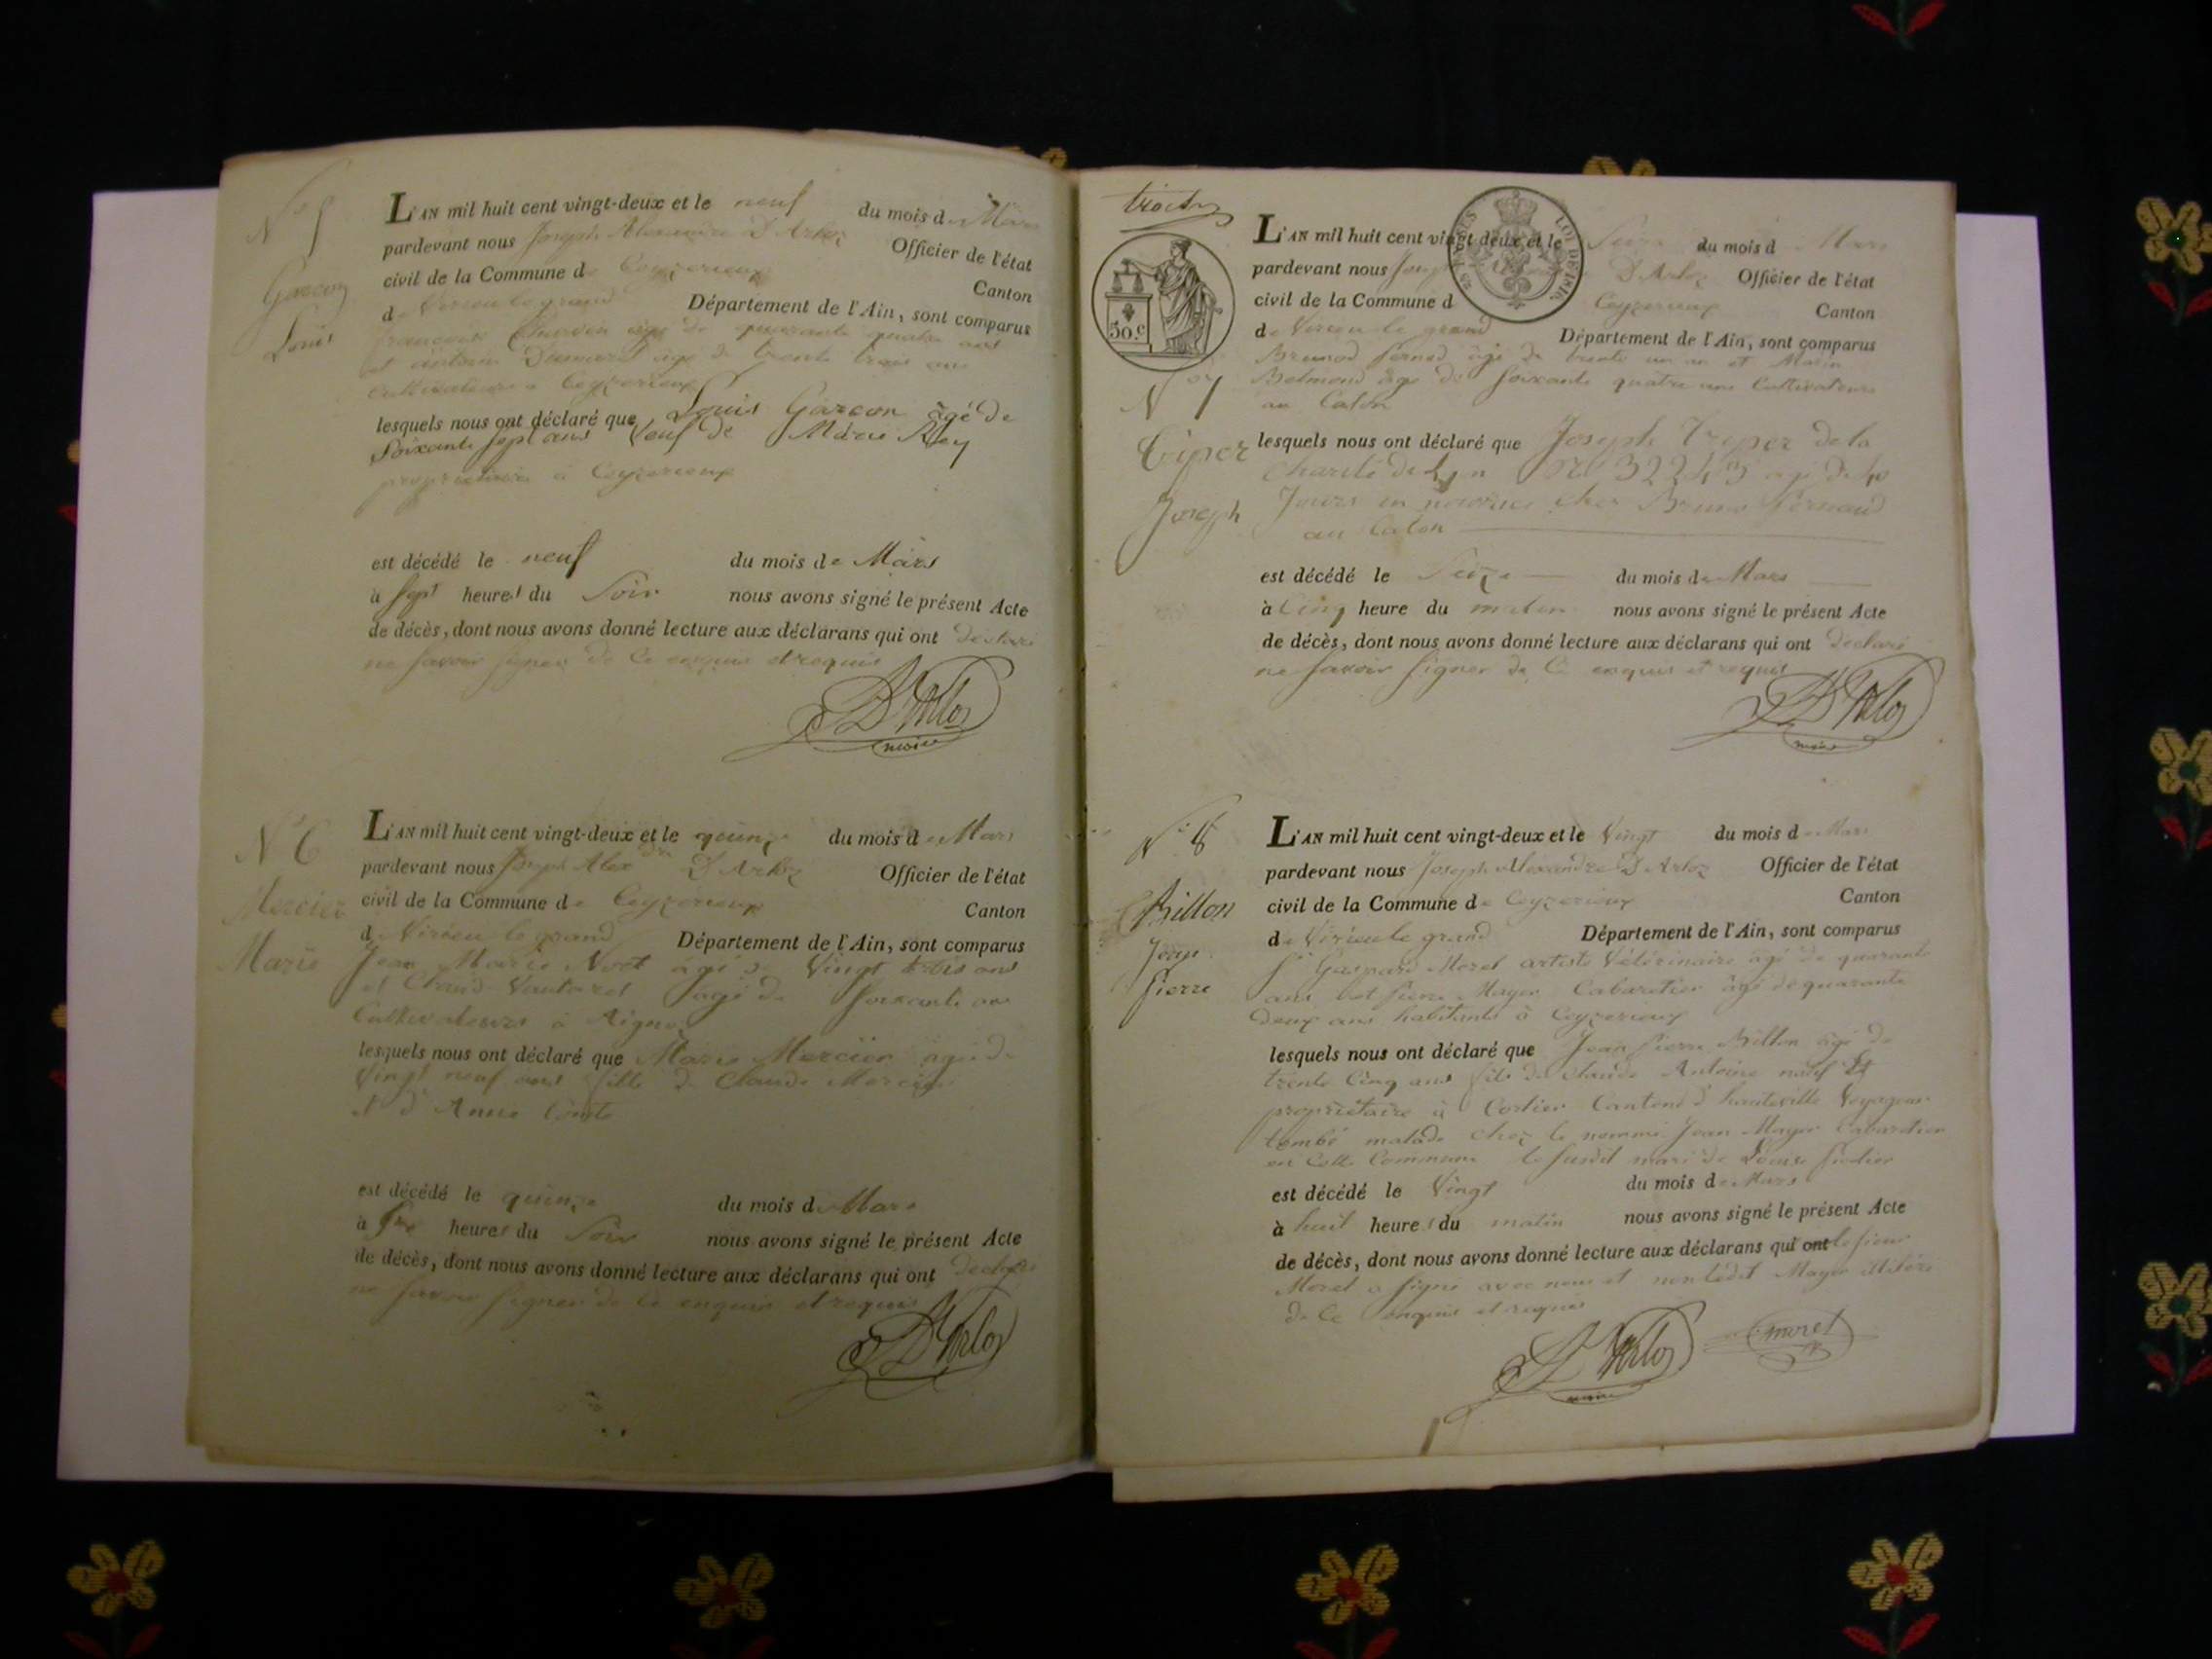 N° 5
Garcon
Louis
L'AN mil huit cent vingt-deux et le neuf du mois de Mars
pardevant nous Joseph Alexandre D'Arloz Officier de l'état
civil de la Commune de Ceyzerieux Canton
de Virieu le grand Département de l'Ain, sont comparus
francois age de quarante quatre ans
et antoine agé de trente trois ans
Cultivateurs a Ceyzerieux
lesquels nous ont déclaré que Louis Garcon âgé de
Soixante sept ans Veuf de Marie Rey
propriétaire à Ceyzerieux
est décédé le neuf du mois de Mars
à sept heures du Soir nous avons signé le présent Acte
de décès, dont nous avons donné lecture aux déclarans qui ont déclaré
ne savoir signer de ce enquis et requis
D'Arloz
maire
N° 6
Mercier
Marie
L'AN mil huit cent vingt-deux et le quinze du mois de Mars
pardevant nous Joseph Alex dre D'Arloz Officier de l'état
civil de la Commune de Ceyzerieux Canton
de Virieu le grand Département de l'Ain, sont comparus
Jean Marie agé de Vingt trois ans
et Claude Vautaret agé de Soixante ans
Cultivateurs à Aignoz
lesquels nous ont déclaré que Marie Mercier âgé de
Vingt neuf ans fille de Claude Mercier
et d'Anne
est décédé le quinze du mois de Mars
à heures du Soir nous avons signé le présent Acte
de décès, dont nous avons donné lecture aux déclarans qui ont declaré
ne savoir signer de ce enquis et requis
D'Arloz
troisr
50.c
LOI DE 1816
N° 7
Tiper
Joseph
L'AN mil huit cent vingt-deux et le Seize du mois d Mars
pardevant nous Joseph D'Arloz Officier de l'état
civil de la Commune d Ceyzerieux Canton
de Virieu le grand Département de l'Ain, sont comparus
Brunod pernod âgé de trente un an et Marin
Belmond âgé de soixante quatre ans Cultivateurs
au Caton
lesquels nous ont déclaré que Joseph Tiper de la
Charité de Lyon No 32243 agé de 40
Jours en nourice chez Bruno Pernaud
au Caton
est décédé le Seize du mois de Mars
à Cinq heure du matin nous avons signé le présent Acte
de décès, dont nous avons donné lecture aux déclarans qui ont déclaré
ne savoir signer de Ce enquis et requis
D'Arloz
maire
N° 8
Billon
Jean
pierre
L'AN mil huit cent vingt-deux et le Vingt du mois de Mars
pardevant nous Joseph Alexandre D'Arloz Officier de l'état
civil de la Commune de Ceyzerieux Canton
de Virieu le grand Département de l'Ain, sont comparus
Sr Gaspard Morel artiste Vétérinaire agé de quarante
ans et pierre Mayer Cabaretier âgé de quarante
deux ans habitants à Ceyzerieux
lesquels nous ont déclaré que Jean pierre Billon agé de
trente Cinq ans fils de claude Antoine natif et
propriétaire à Corlier Canton d'hauteville Voyageur
tombé malade chez le nommé Jean Mayer Cabaretier
en Cette Commune le susdit mari de Louise
est décédé le Vingt du mois de Mars
à huit heures du matin nous avons signé le présent Acte
de décès, dont nous avons donné lecture aux déclarans qui ont le sieur
Morel a signé avec nous et non ledit Mayer illitéré
de Ce enquis et requis
D'Arloz
maire
morel